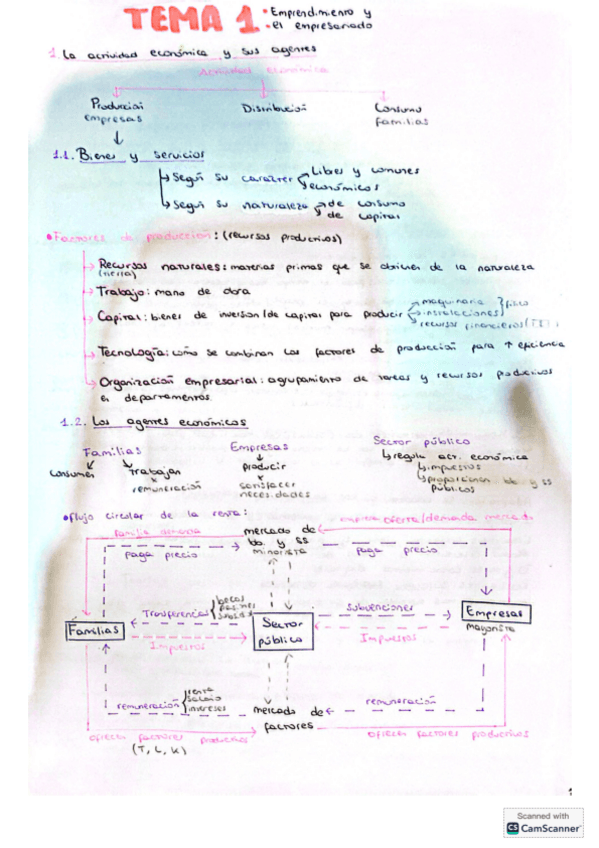 TEMA 1: • Emprendimiento y
• el empresariado
1. La actividad económica y sus agentes
Actividad económica
Producción Distribución Consumo
empresas familias
1.1. Bienes y servicios
Según su carácter Libres y comunes
económicos
Según su naturaleza de consumo
de capital
• Factores de producción: (recursos productivos)
Recursos naturales: materias primas que se obtienen de la naturaleza
(tierra)
Trabajo: mano de obra
Capital: bienes de inversion/de capital para producir maquinaria } físico
instalaciones
recursos financieros
Tecnología: cómo se combinan los factores de producción para ↑ eficiencia
Organización empresarial: agrupamiento de tareas y recursos productivos
en departamentos
1.2. Los agentes económicos
Familias Empresas Sector público
consumen trabajan producir regula act. económica
remuneración satisfacer impuestos
necesidades proporcionan bb y ss
públicos
• Flujo circular de la renta:
familia demanda mercado de oferta/demanda mercado
bb y ss
paga precio minorista paga precio
Transferencias becas Subvenciones
Familias Sector Empresas
público mayorista
Impuestos Impuestos
remuneración renta remuneración
salario
intereses mercado de
factores
ofrecen factores productivos ofrecen factores productivos
(T, L, K)
1
Scanned with
CS CamScanner